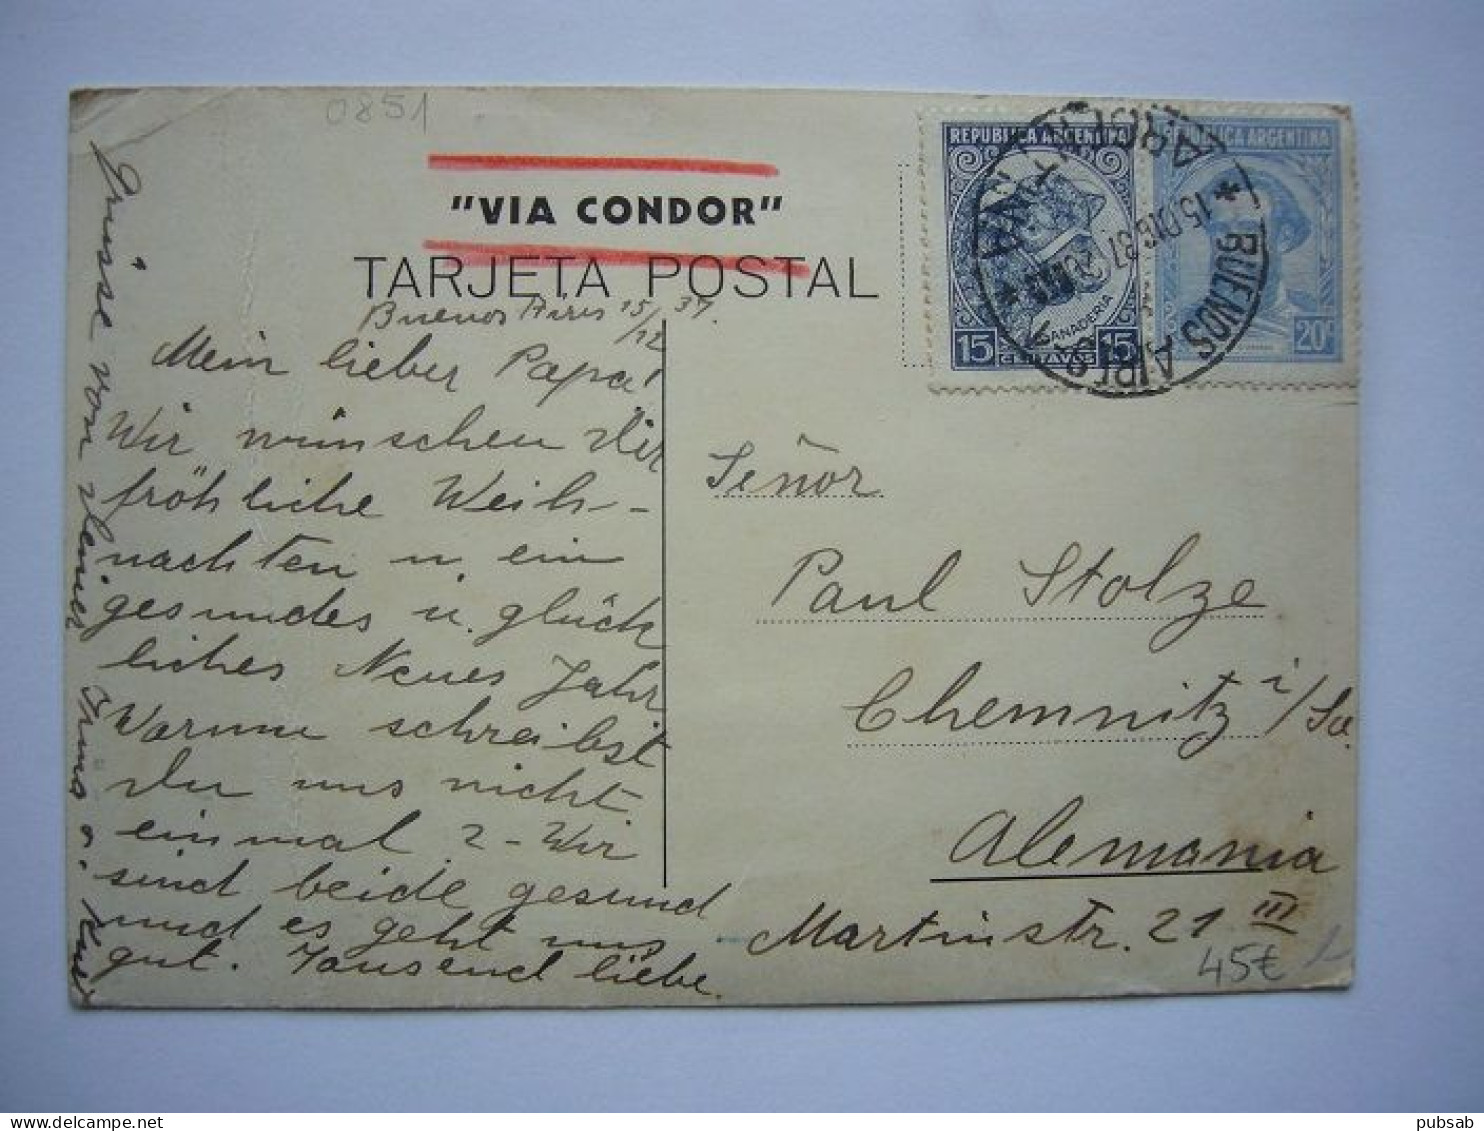 0851
"VIA CONDOR"
TARJETA POSTAL
REPUBLICA ARGENTINA
GANADERIA
15 CENTAVOS 15
REPUBLICA ARGENTINA
20c
BUENOS AIRES
* 15 DIC 37
ARGENTINA
Buenos Aires 15/12 37.
Mein lieber Papa!
Wir wünschen Dir
fröhliche Weih-
nachten u. ein
gesundes u. glück
liches Neues Jahr
Warum schreibst
Du uns nicht
einmal ? - Wir
sind beide gesund
und es geht uns
gut. Tausend liebe
Grüsse von Deiner Irma u. Kurt
Señor
Paul Stolze
Chemnitz i/Sa.
Alemania
Martinstr. 21 III
45€
pubsab